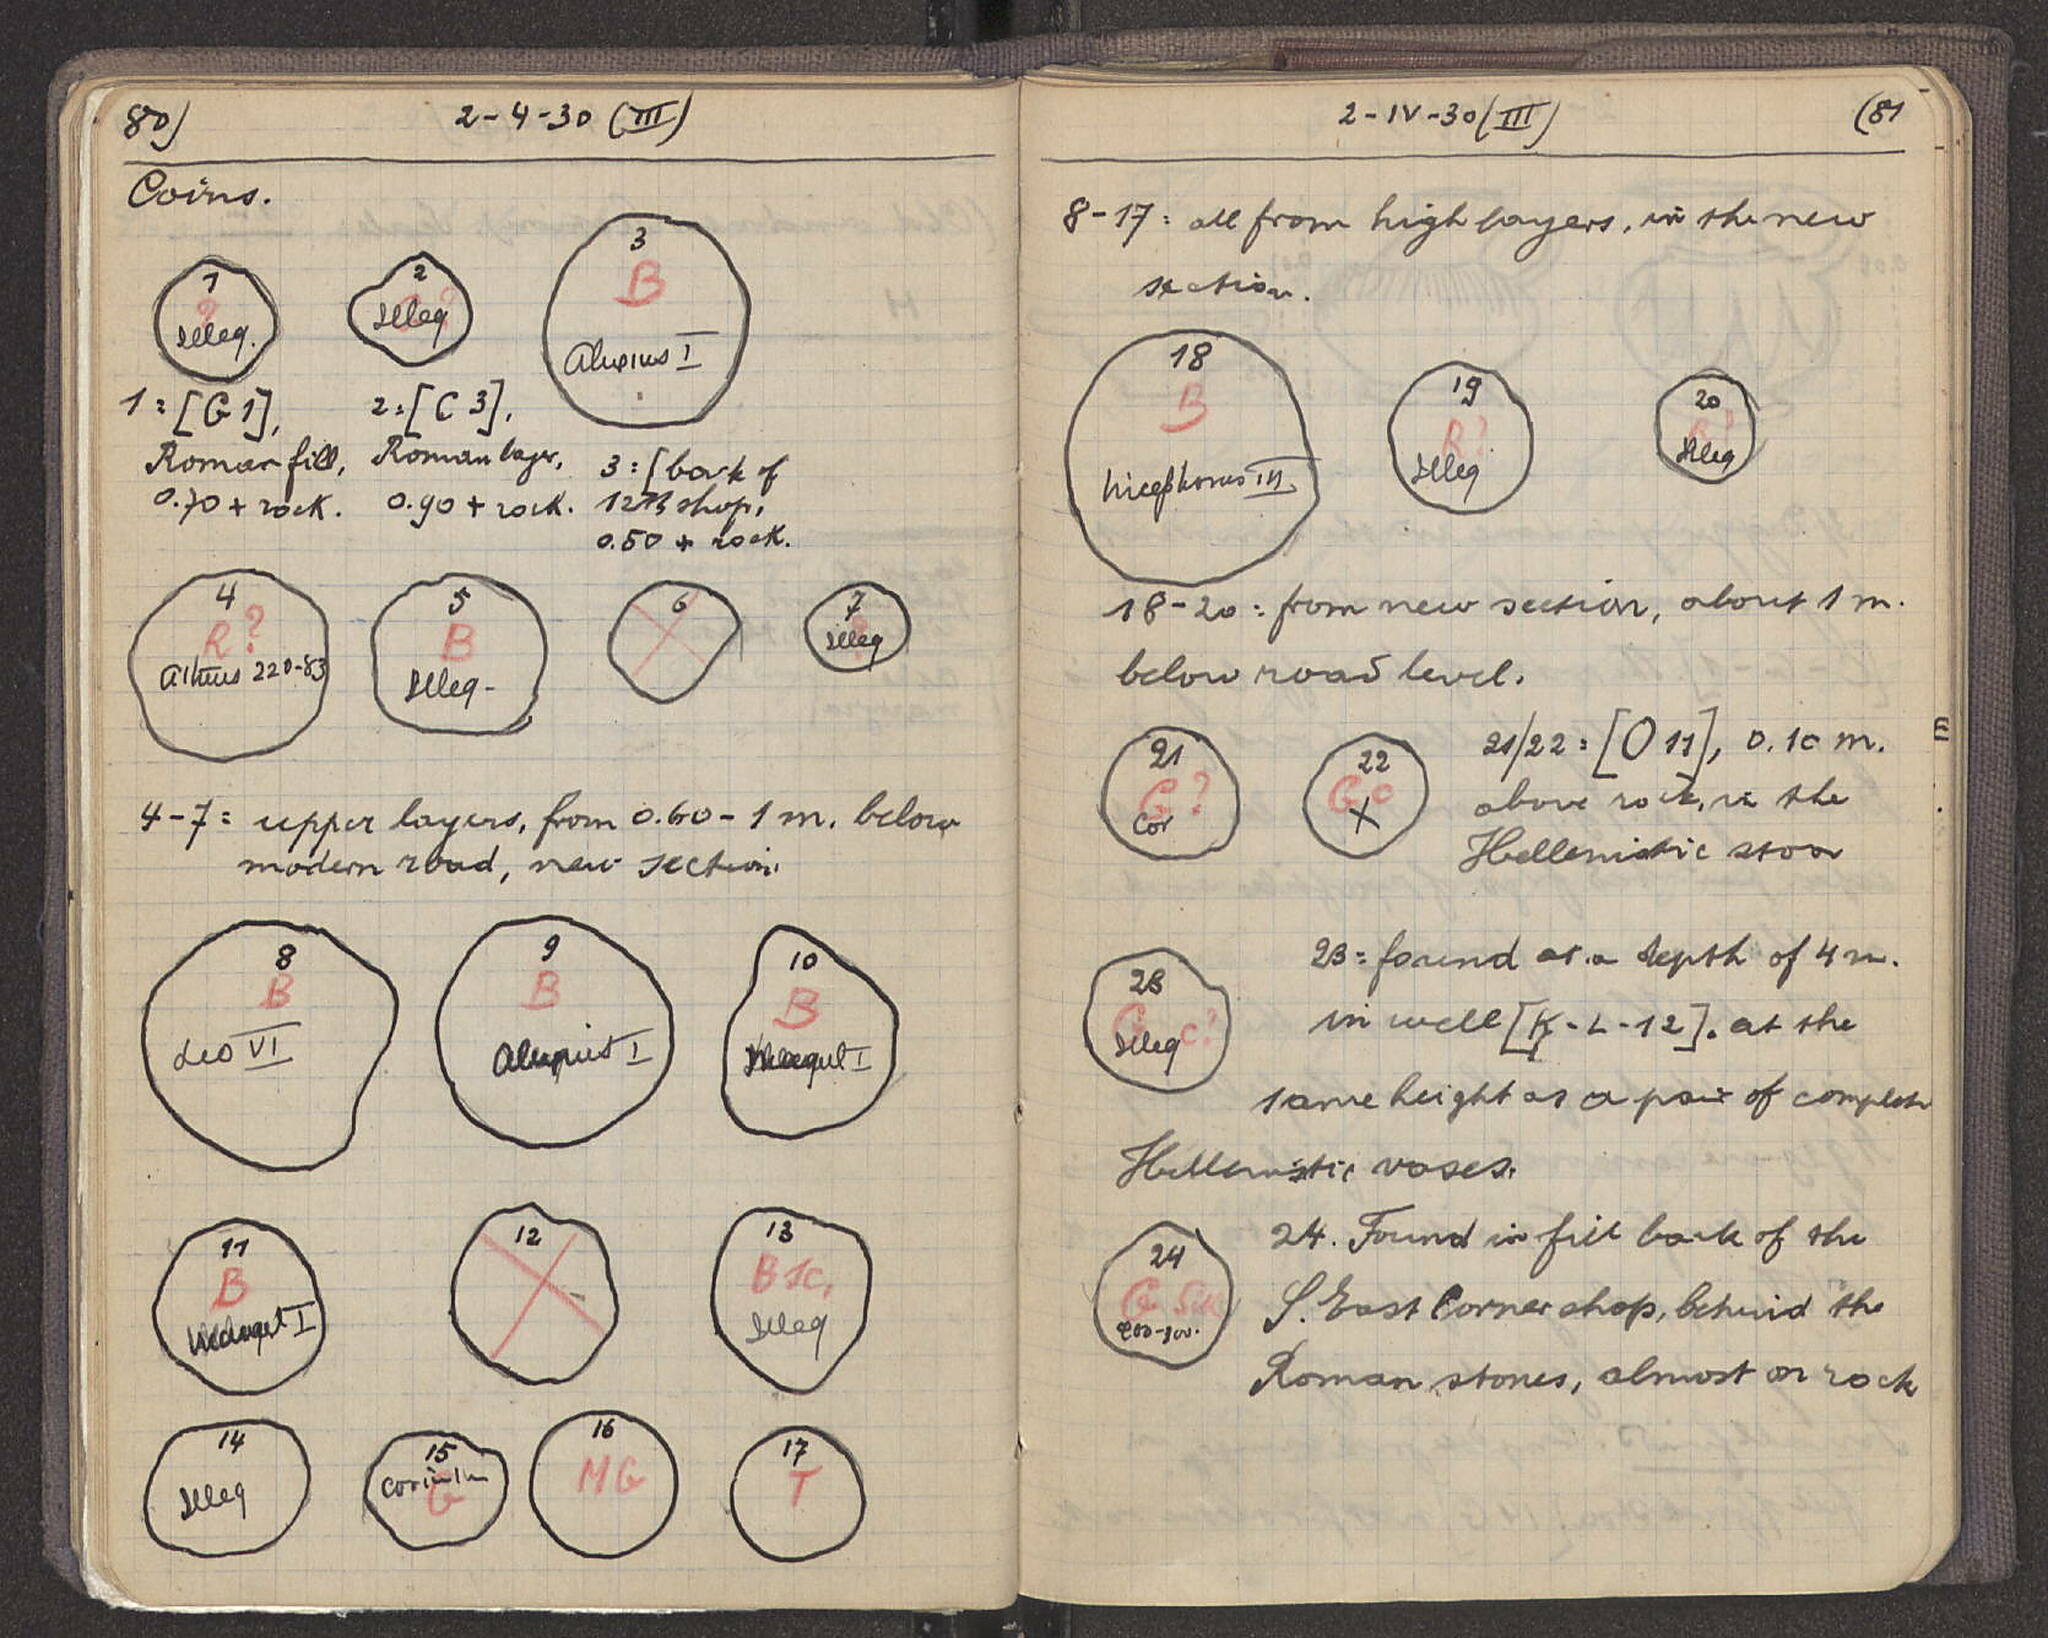 80)
2-4-30 (III)
Coins.
1
?
Illeg.
2
Illeg
3
B
Alexius I
1 = [G 1],
Roman fill,
0.70 + rock.
2 = [C 3],
Roman layer,
0.90 + rock.
3 = [back of
12th shop,
0.50 + rock.
4
R?
Athens 220-83
5
B
Illeg-
6
7
Illeg
4-7 = upper layers, from 0.60 - 1 m. below
modern road, new section.
8
B
Leo VI
9
B
Alexius I
10
B
I
11
B
I
12
13
B Sc,
Illeg
14
Illeg
15
Corinth
G
16
MG
17
T
2-IV-30 (III)
(81
8-17: all from high layers, in the new
section.
18
B
Nicephorus III
19
R?
Illeg
20
R?
Illeg
18-20: from new section, about 1 m.
below road level.
21
G?
Cor
22
G c
X
21/22 = [O 11], 0.10 m.
above rock, in the
Hellenistic stoa
23
G c?
Illeg
23 = found at a depth of 4 m.
in well [K-L-12]. at the
same height as a pair of complete
Hellenistic vases.
24
G Sik
24. Found in fill back of the
S. East Corner shop, behind the
Roman stones, almost on rock